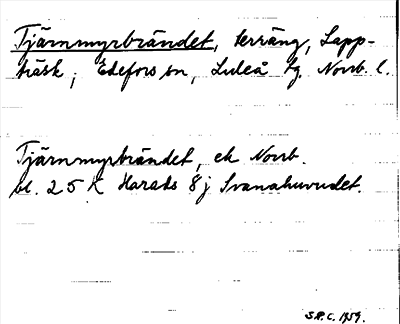 Tjärnmyrbrändet, terräng, Lapp-
träsk; Edefors sn, Luleå tg Norrb. l.
Tjärnmyrbrändet, ek Norrb.
bl. 25 K Harads 8 j Svanahuvudet.
S.P.C. 1959.